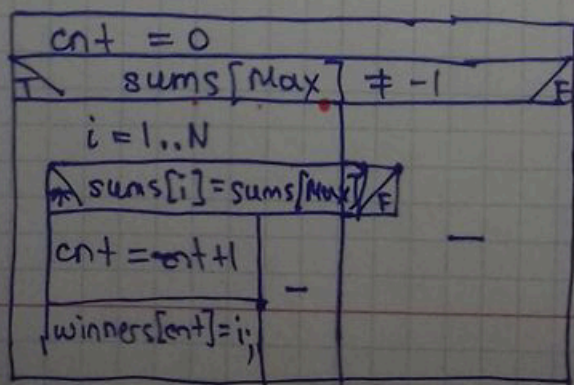 cnt = 0
T sums[Max] ≠ -1 F
i = 1..N
sums[i]=sums[Max] F
cnt = cnt+1
-
winners[cnt]=i;
-